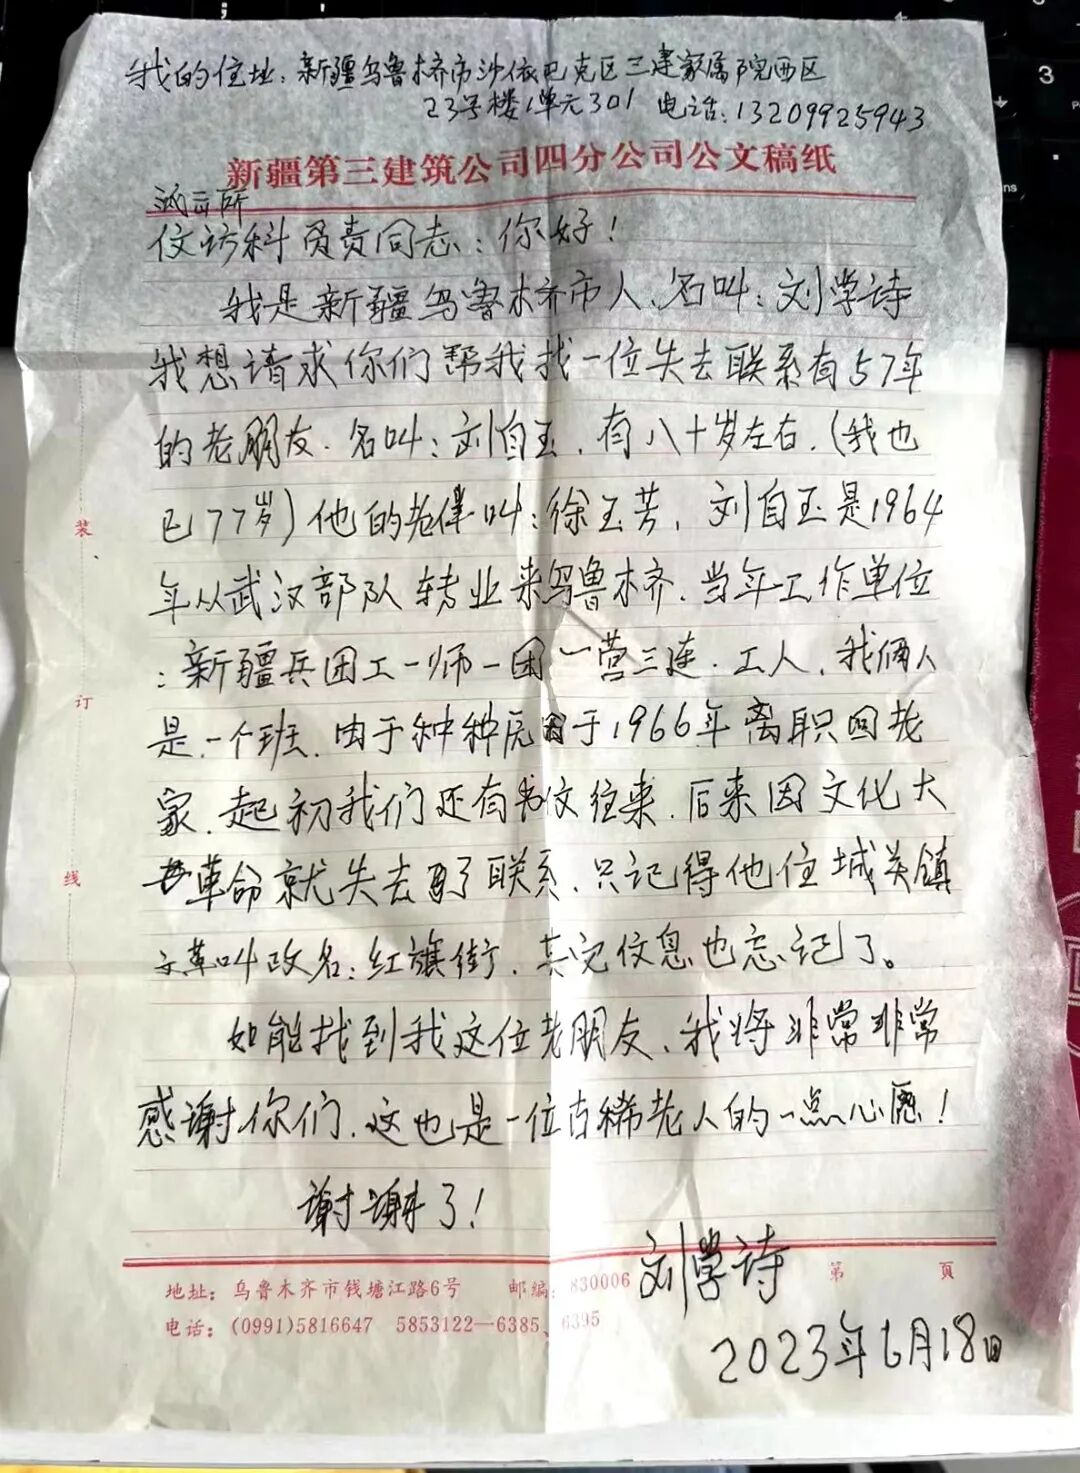 我的住址：新疆乌鲁木齐市沙依巴克区三建家属院西区
23号楼1单元301 电话：13209925943
新疆第三建筑公司四分公司公文稿纸
派出所
信访科负责同志：你好！
我是新疆乌鲁木齐市人、名叫：刘学诗
我想请求你们帮我找一位失去联系有57年
的老朋友．名叫：刘自玉．有八十岁左右．（我也
已77岁）他的老伴叫：徐玉芳，刘自玉是1964
年从武汉部队转业来乌鲁木齐．当年工作单位
：新疆兵团工一师一团一营三连．工人．我俩人
是一个班．由于种种原因于1966年离职回老
家．起初我们还有书信往来．后来因文化大
革命就失去了联系．只记得他住城关镇
文革叫改名：红旗街．其它信息也忘记了。
如能找到我这位老朋友、我将非常非常
感谢你们．这也是一位古稀老人的一点心愿！
谢谢了！
刘学诗
2023年6月18日
装
订
线
地址：乌鲁木齐市钱塘江路6号 邮编：830006 第 页
电话：(0991)5816647 5853122—6385、6395